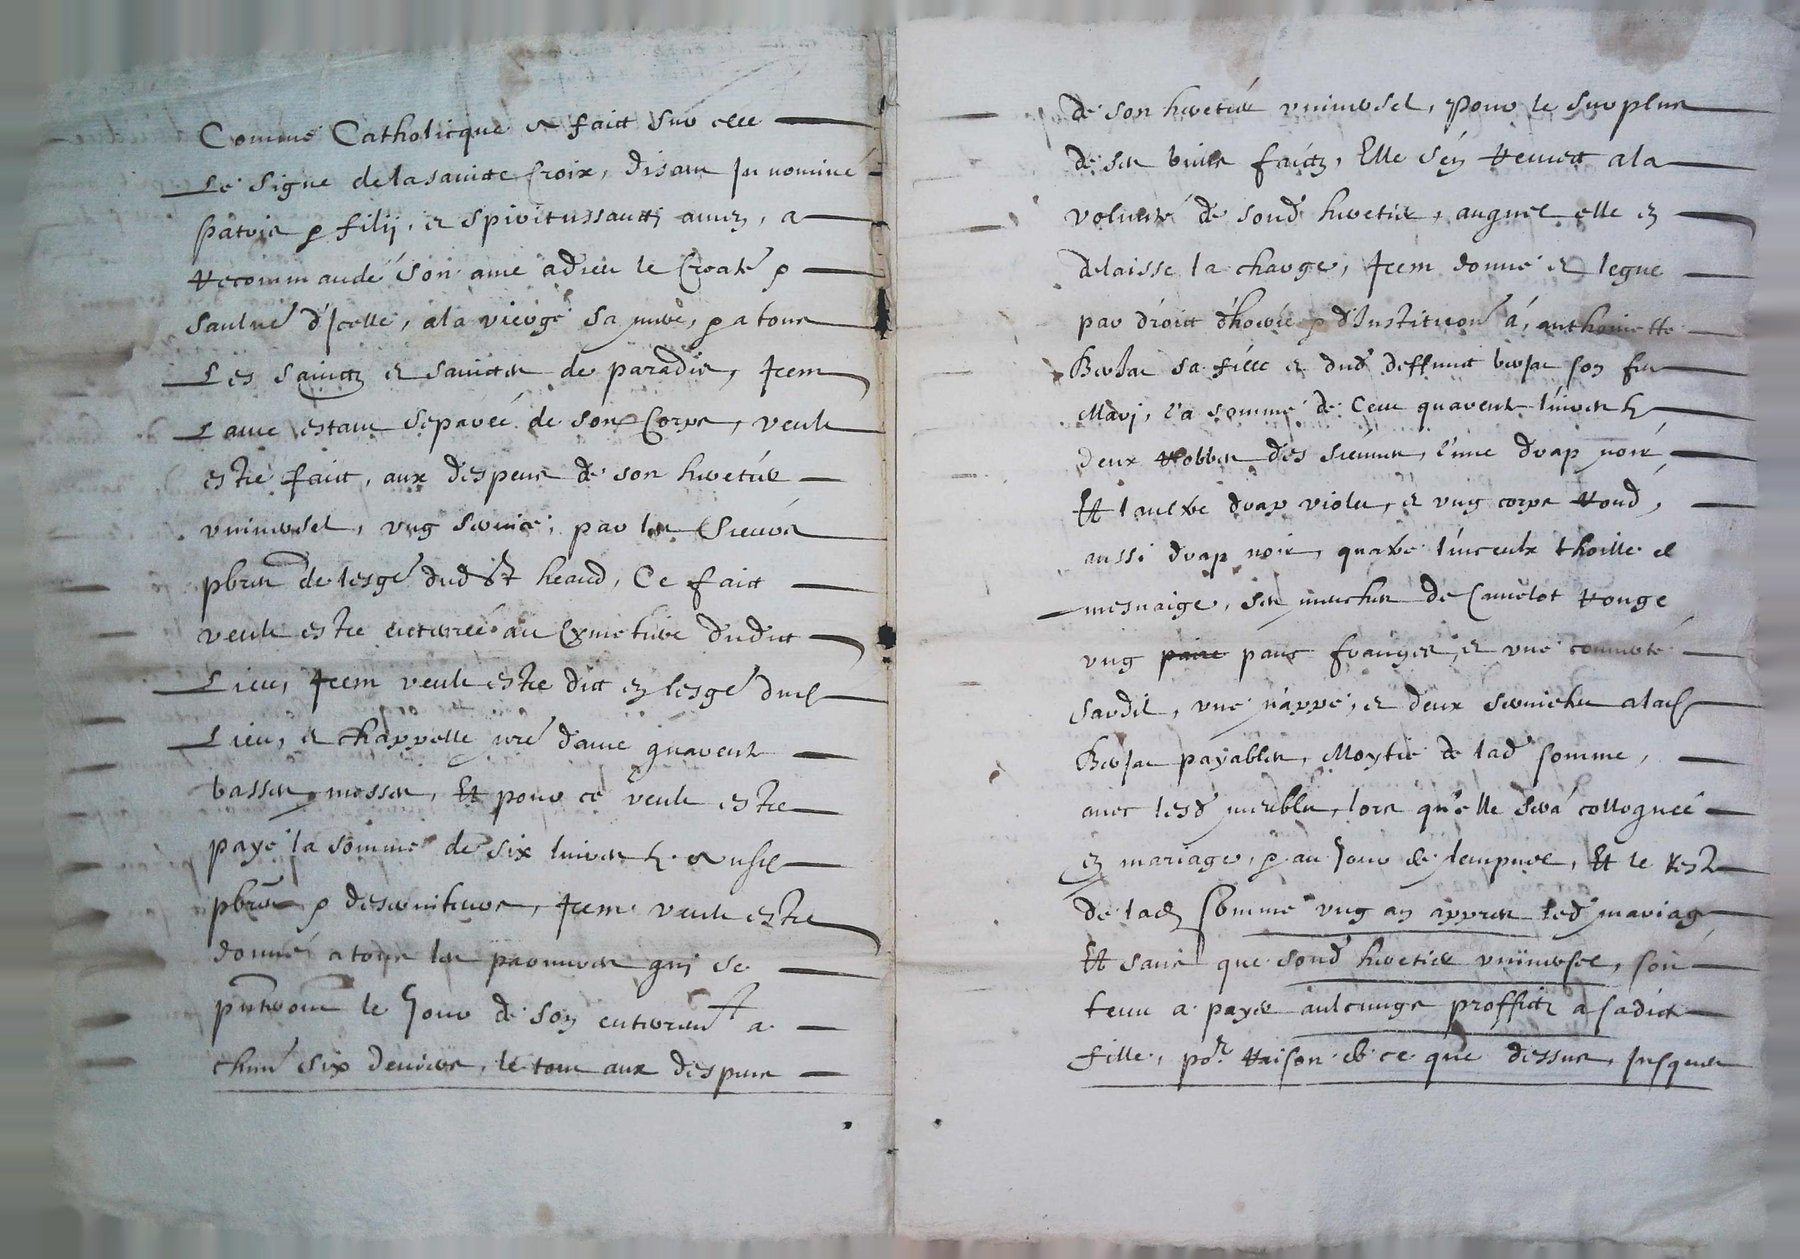 Comme Catholicque a faict sur elle
Le signe de la saincte Croix, disant In nomine
patris & filij, et spiritussancti amen, a
Recommandé son ame a dieu le Creater &
saulveur d'Icelle, a la vierge sa mere, & a tous
Les sainctz et sainctes de paradis, Item
L'ame estant separée de son Corps, veult
estre faict, aux despens de son heretier
universel, ung service, par les sieurs
pbres de lesgle dud St heand, Ce faict
veult estre enterrée au Cymetiere dudict
Lieu, Item veult estre dict en lesgle dud
Lieu, et chappelle nre dame quarente
basses messes, Et pour ce veult estre
payé la somme de six livres t. ausd
pbres & desserviteurs, Item veult estre
donné a tous les pauvres qui se
pnteront le Jour de son enterremt a
chun six deniers, le tout aux despens
de son heretier universel, Pour le surplus
de ses biens faictz, Elle s'en Remett a la
volunté de sond heretier, auquel elle en
delaisse la charge, Item donne et legue
par droict d'hoirie & d'Institution à, anthoinette
sa fille et dud deffunct son feu
Mary, la somme de Cent quarente livres t
deux Robbes des siennes, l'une drap noir
Et l'aultre drap violet, et ung corps Rond,
aussi drap noir, quatre linceulx thoille de
mesnaige, ses manches de Camelot Rouge
ung paire pant franges, et une couverte
sardit, une nappe, et deux serviettes a lad
payables, Moytié de lad somme,
avec lesd meubles, lors qu'elle sera colloquée
en mariage, & au Jour de lempnel, Et le Reste
de lad somme ung an appres led mariage
Et sans que sond heretier universel, soit
tenu a payer aulcungs proffictz a sadicte
fille, por Raison de ce que dessus, Jusques